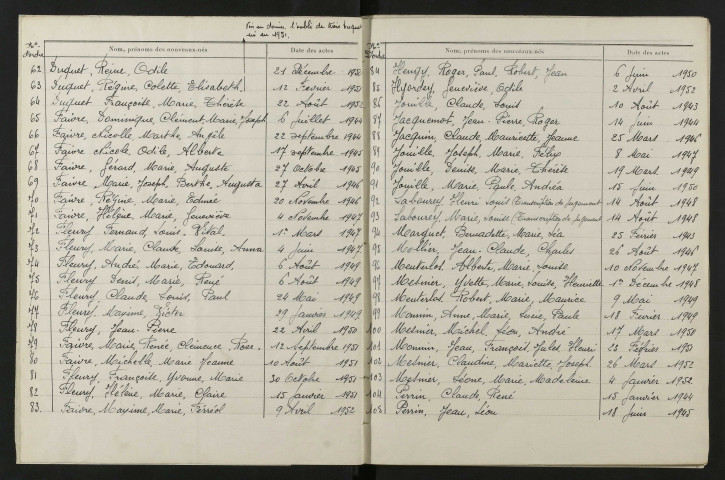 né en 1951.
Nos d'ordre Nom, prénoms des nouveaux-nés Date des actes
62 Duquet, Reine, Odile 21 Décembre 1950
63 Duquet, Régine, Colette, Elisabeth. 12 Février 1951
64 Duquet Françoise, Marie, Thérèse 22 Août 1952
65 Faivre, Dominique, Clément, Marie, Joseph 6 Juillet 1944
66 Faivre Nicolle Marthe, Angèle 22 Septembre 1944
67 Faivre Nicole, Odile, Alberte 17 Septembre 1945
68 Faivre, Gérard, Marie, Auguste 27 Octobre 1945
69 Faivre Marie, Joseph, Berthe, Augusta 27 Avril 1946
70 Faivre, Régine, Marie, Edmée 20 Novembre 1946
71 Faivre, Hélène, Marie, Geneviève 4 Novembre 1947
72 Fleury Fernand, Louis, Vital. 1er Mars 1947
73 Fleury, Marie, Claude, Louise, Anna 4 Juin 1947
74 Fleury, André, Marie, Edouard, 6 Août 1949
75 Fleury Denis, Marie, René 6 Août 1949
76 Fleury, Claude, Louis, Paul 24 Mai 1949
77 Fleury, Maxime, 29 Janvier 1949
78 Fleury, Jean-Pierre 22 Avril 1950
79 Faivre, Marie, Renée, Clémence, Rose. 12 Septembre 1951
80 Faivre, Michelle, Marie, Jeanne 10 Août 1951
81 Fleury, Françoise, Yvonne, Marie 30 Octobre 1951
82 Fleury, Hélène, Marie, Claire 15 Janvier 1951
83. Faivre, Maxime, Marie, Ferréol 9 Avril 1952
Nos d'ordre Nom, prénoms des nouveaux-nés Date des actes
84 Henry, Roger, Paul, Robert, Jean 6 Juin 1950
85 Geneviève, Odile 2 Avril 1952
86 Jouille, Claude, Louis 10 Août 1943
87 Jacquemot, Jean-Pierre, Roger 14 Juin 1944
88 Jacquin, Claude, Mauricette, Jeanne 25 Mars 1946
89 Jouille, Joseph, Marie, Félix 8 Mai 1947
90 Jouille Denise, Marie, Thérèse 19 Mars 1949
91 Jouille, Marie, Paule, Andréa 15 Juin 1950
92 Labourey Henri Louis (Transcription de jugement 14 Août 1948
93 Labourey, Marie, Louise (Transcription de jugement 14 Août 1948
94 Marquet, Bernadette, Marie, Léa 25 Février 1943
95 Mollier, Jean-Claude, Charles 26 Août 1946
96 Alberte, Marie, Louise 10 Novembre 1947
97 Mesnier, Yvette, Marie, Louise, Henriette 1er Décembre 1948
98 Robert, Marie, Maurice 9 Mai 1949
99 Monnin, Anne, Marie, Lucie, Paule 18 Février 1949
100 Mesnier Michel, Léon, André 17 Mars 1950
101 Monnin, Jean, François, Jules, Henri 23 Février 1951
102 Mesnier, Claudine, Mariette, Joseph. 26 Mars 1952
103 Mesnier, Léone, Marie, Madeleine 4 Janvier 1952.
104 Perrin, Claude, René 15 Janvier 1944
105 Perrin, Jean, Léon 18 Juin 1945